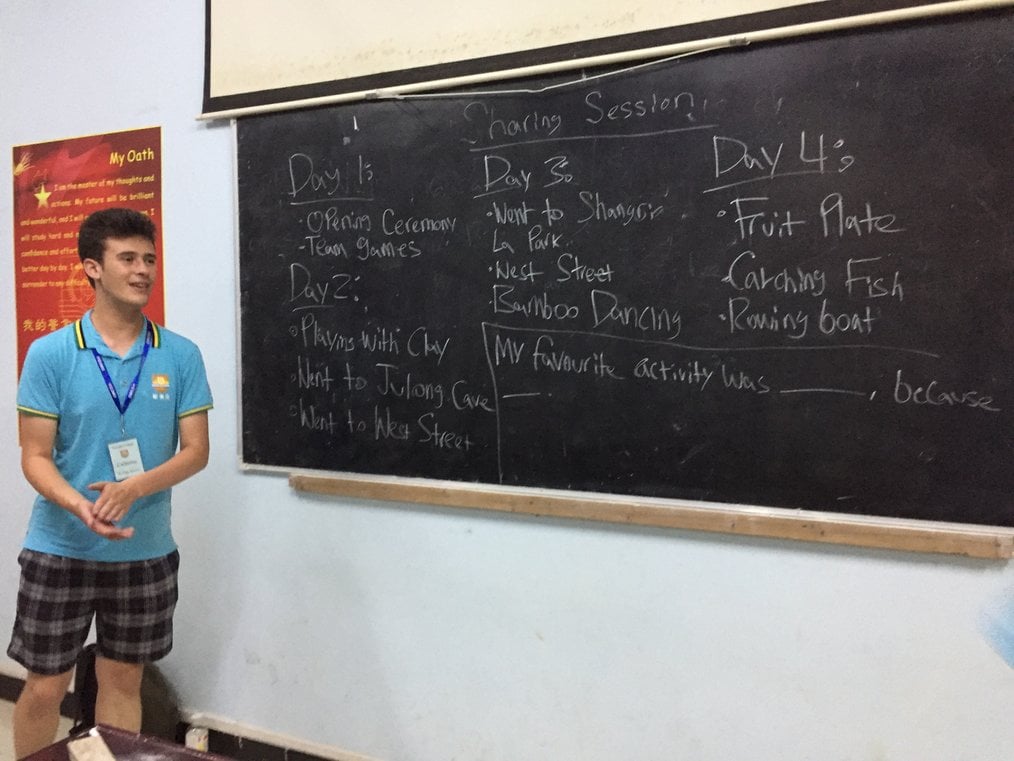 My Oath
I am the master of my thoughts and
actions. My future will be brilliant
and wonderful, and I will
will study hard and
confidence and effort
better day by day. I
surrender to any
我的誓
Sharing Session
Day 1:
·Opening Ceremony
·Team games
Day 2:
·Playing with Clay
·Went to Julong Cave
·Went to West Street
Day 3:
·Went to Shangri
La Park.
·West Street
·Bamboo Dancing
Day 4:
·Fruit Plate
·Catching Fish
·Rowing boat
My favourite activity was ______, because
___.